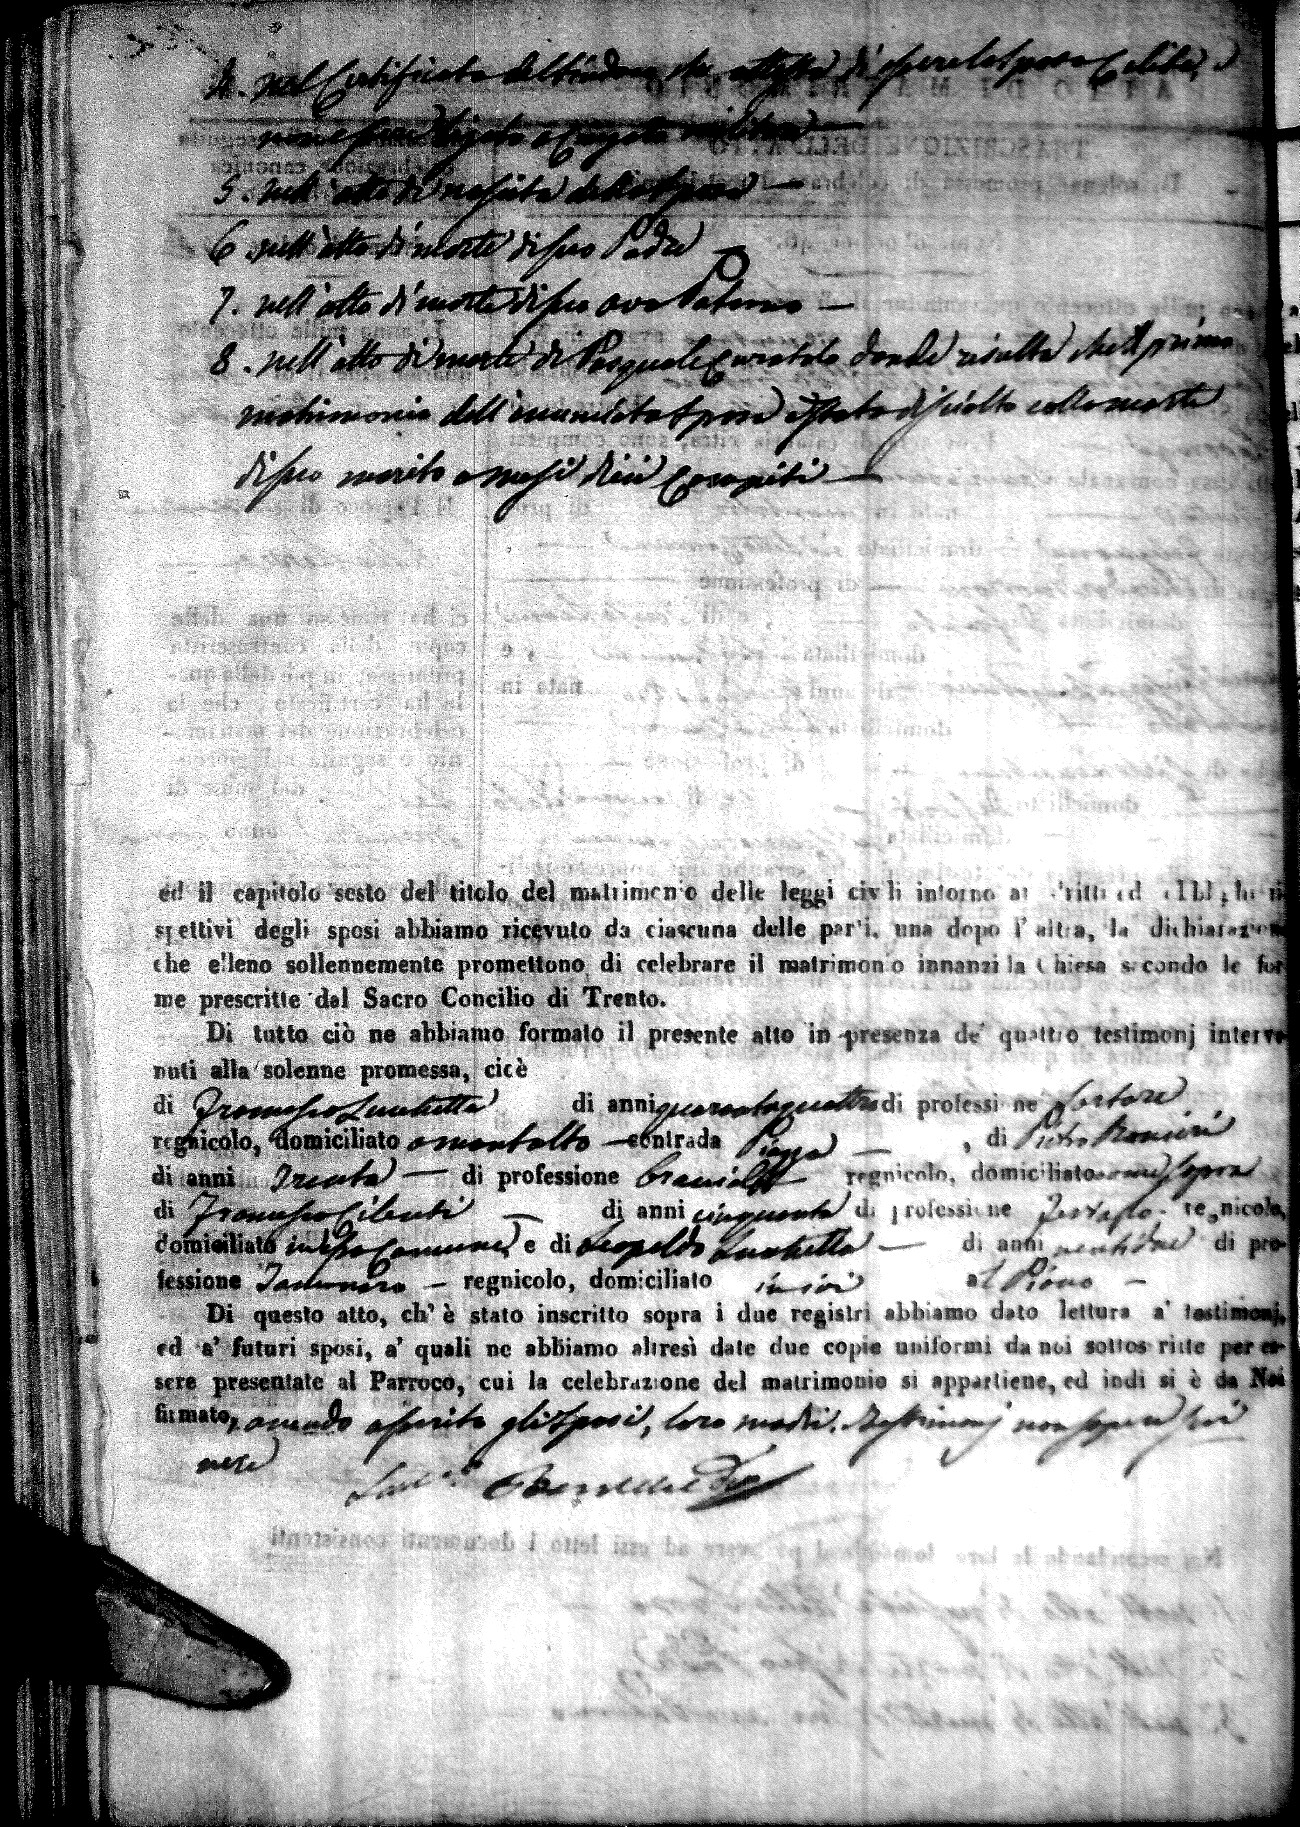 4. nel Certificato del Sindaco che attesta di essere lo sposo Celibe, e
non esser legato a Congedo militare —
5. nell'atto di nascita della sposa —
6. nell'atto di morte di suo Padre
7. nell'atto di morte di suo avo Paterno —
8. nell'atto di morte di Pasquale Curatolo donde risulta che il primo
matrimonio dell'enunciata sposa è stato disciolto colla morte
di suo marito a mesi dieci compiti —
ed il capitolo sesto del titolo del matrimonio delle leggi civili intorno ai dritti ed obblighi ri-
spettivi degli sposi abbiamo ricevuto da ciascuna delle parti, una dopo l' altra, la dichiarazione
che elleno sollennemente promettono di celebrare il matrimonio innanzi la Chiesa secondo le for-
me prescritte dal Sacro Concilio di Trento.
Di tutto ciò ne abbiamo formato il presente atto in presenza de' quattro testimonj interve-
nuti alla solenne promessa, cioè
di Francesco Lucchetta di anni quarantaquattro di professione Sartore
regnicolo, domiciliato a montalto — contrada Piazza — , di Pietro Ranieri
di anni Trenta — di professione regnicolo, domiciliato come sopra
di Francesco Cilenti — di anni cinquanta di professione regnicolo,
domiciliato in d.º Comune, e di Leopoldo Lucchetta — di anni ventidue di pro-
fessione — regnicolo, domiciliato ivi al Piano —
Di questo atto, ch' è stato inscritto sopra i due registri abbiamo dato lettura a' testimonj,
ed a' futuri sposi, a' quali ne abbiamo altresì date due copie uniformi da noi sottoscritte per es-
sere presentate al Parroco, cui la celebrazione del matrimonio si appartiene, ed indi si è da Noi
firmato, avendo asserito gli sposi, loro madri, e testimonj non saper scri
vere